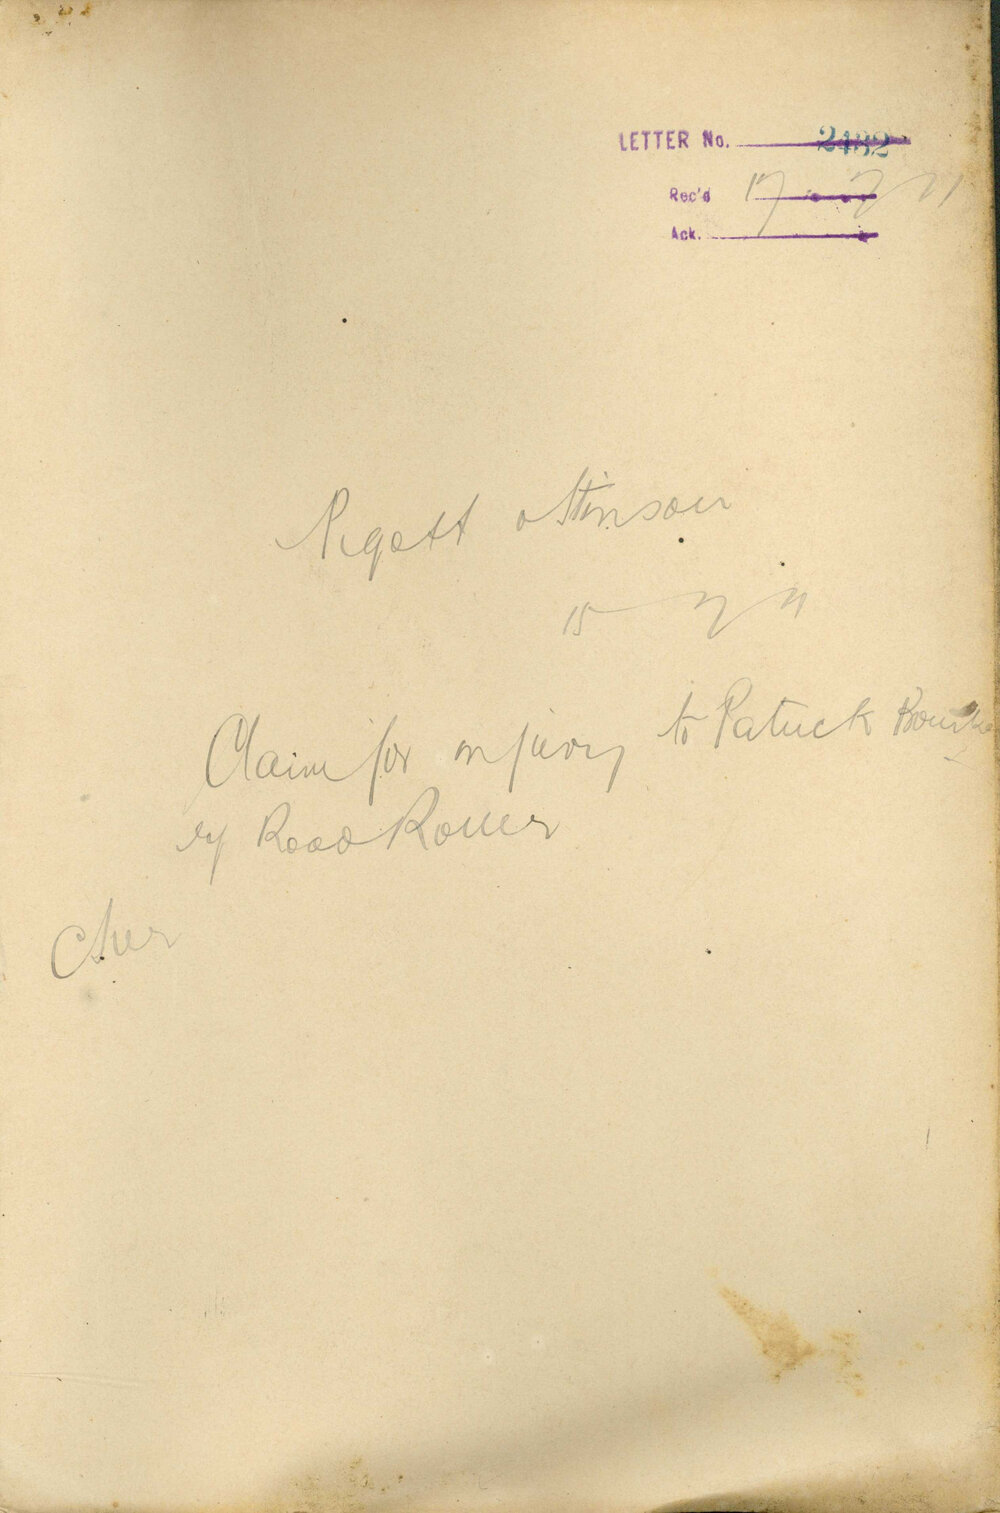 LETTER No. 2482
Rec'd 17 - 7 - 11
Ack.
Pigott & Stinson
15 - 7 - 11
Claim for injury to Patrick Bourke
by Road Roller